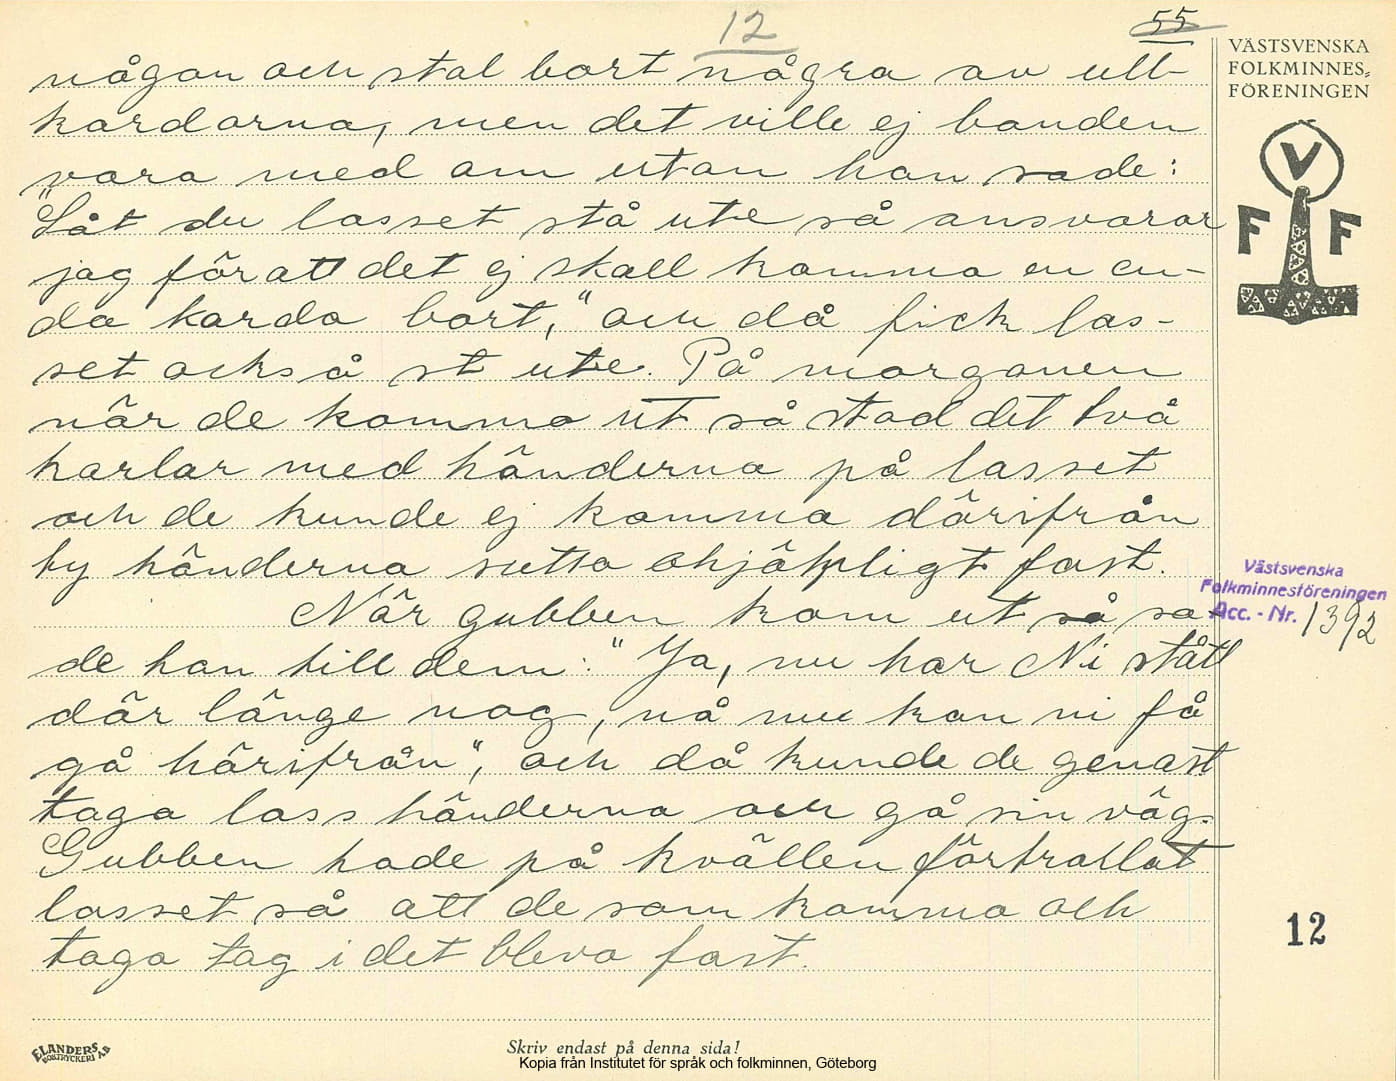 12
55
någon och stal bort några av ull-
kardorna, men det ville ej bonden
vara med om utan han sade:
"Låt du lasset stå ute så ansvarar
jag för att det ej skall komma en en-
da karda bort," och då fick las-
set också st ute. På morgonen
när de komma ut så stod det två
karlar med händerna på lasset
och de kunde ej komma därifrån
ty händerna sutto ohjälpligt fast.
När gubben kom ut så sa-
de han till dem: "Ja, nu har Ni stått
där länge nog, nå nu kan ni få
gå härifrån", och då kunde de genast
taga loss händerna och gå sin väg.
Gubben hade på kvällen förtrollat
lasset så att de som komma och
taga tag i det bleva fast.
VÄSTSVENSKA
FOLKMINNES-
FÖRENINGEN
V
F F
Västsvenska
Folkminnesföreningen
Acc. - Nr. 1392
12
ELANDERS
BOKTRYCKERI A.B
Skriv endast på denna sida!
Kopia från Institutet för språk och folkminnen, Göteborg